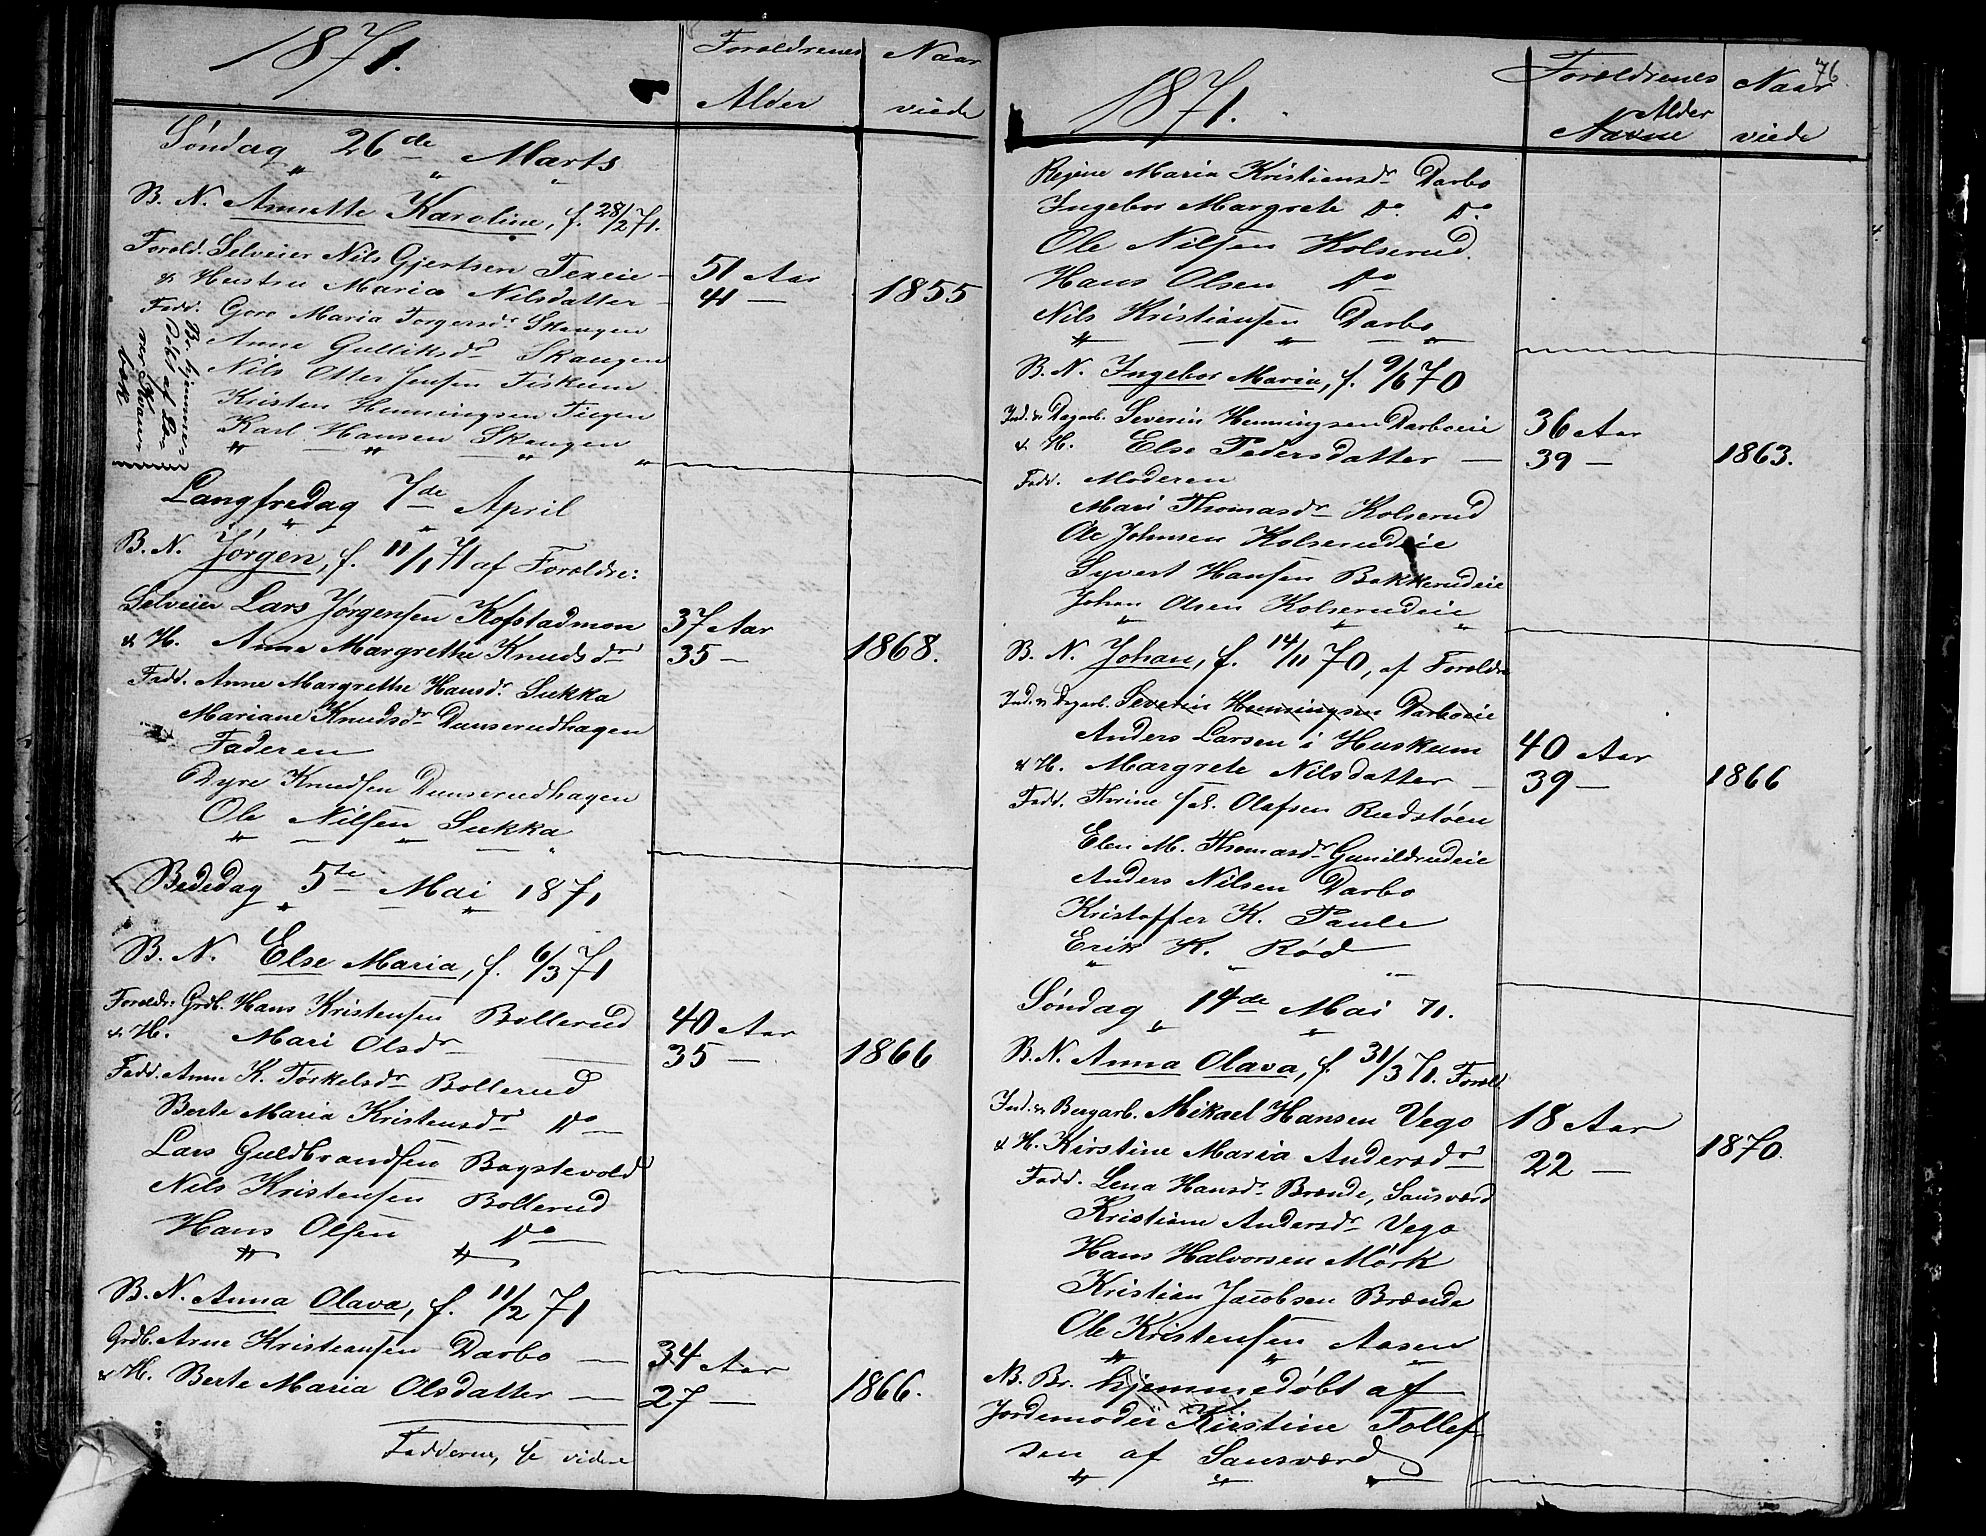 1871.
Foreldrenes
Alder
Naar
viede
Søndag 26de Marts
B. N. Annette Karoline, f. 28/2 71.
Foreld. Selveier Nils Gjertsen Texeie — 51 Aar
& Hustru Maria Nilsdatter — 41 — 1855
Fadd. Goro Maria Torgersdr Skangen
Anne Gulliksdr Skangen
Nils Otter Jensen Fiskum
Kristen Henningsen Tiegen
Karl Hansen Skangen
Br. hjemme-
døbt af Læ-
rer Knut-
bæk.
Langfredag 7de April
B. N. Jørgen, f. 11/1 71 af Foreldre:
Selveier Lars Jørgensen Kofstadmon 37 Aar
& H. Anne Margrethe Knudsdr 35 — 1868.
Fadd. Anne Margrethe Hansdr. Sukka
Mariane Knudsdr Dunserudhagen
Faderen
Dyre Knudsen Dunserudhagen
Ole Nilsen Sukka
Bededag 5te Mai 1871
B. N. Else Maria, f. 6/3 71
Foreldr: Grdb. Hans Kristensen Bollerud 40 Aar
& H. Mari Olsdr — 35 — 1866
Fadd. Anne K. Torkelsdr Bollerud
Berte Maria Kristensdr Do
Lars Guldbrandsen Bagstevold
Nils Kristensen Bollerud
Hans Olsen Do
B. N. Anna Olava, f. 11/2 71
Grdb. Arne Kristiansen Darbo — 34 Aar
& H. Berte Maria Olsdatter — 27 — 1866.
Fadderne, se videre
76
1871.
Foreldrenes
Alder
Navne
Naar
viede
Rejine Maria Kristiansdr Darbo
Ingebor Margrete Do. Do
Ole Nilsen Kolserud.
Hans Olsen Do
Nils Kristiansen Darbo
B. N. Ingebor Maria, f. 9/6 70
Ind. & Dagarb. Severin Henningsen Darboeie 36 Aar
& H. Else Pedersdatter — 39 — 1863.
Fadd. Moderen
Mari Thomasdr Kolserud
Ole Johnsen Kolserudeie
Syvert Hansen Bakkerudeie
Johan Olsen Kolserudeie
B. N. Johan, f. 14/11 70, af Foreldr
Ind. & Dagarb. Severin Henningsen Darboeie
Anders Larsen i Huskum 40 Aar
& H. Margrete Nilsdatter — 39 — 1866
Fadd. Thrine Olafsen Rudstøen
Elen M. Thomasdr Gunildrudeie
Anders Nilsen Darbo
Kristoffer K. Paule
Erik K. Rød
Søndag 14de Mai 71.
B. N. Anna Olava, f. 31/3 71. Foreld
Ind. & Bergarb. Mikael Hansen Vego 18 Aar
& H. Kirstine Maria Andersdr 22 — 1870.
Fadd. Lena Hansdr. Brænde, Sausværd
Kristiane Andersdr Vego
Hans Halvorsen Mørk
Kristian Jacobsen Brænde
Ole Kristensen Aasen
N. Br. hjemmedøbt af
Jordemoder Kirstine Tollef-
sen af Sausværd